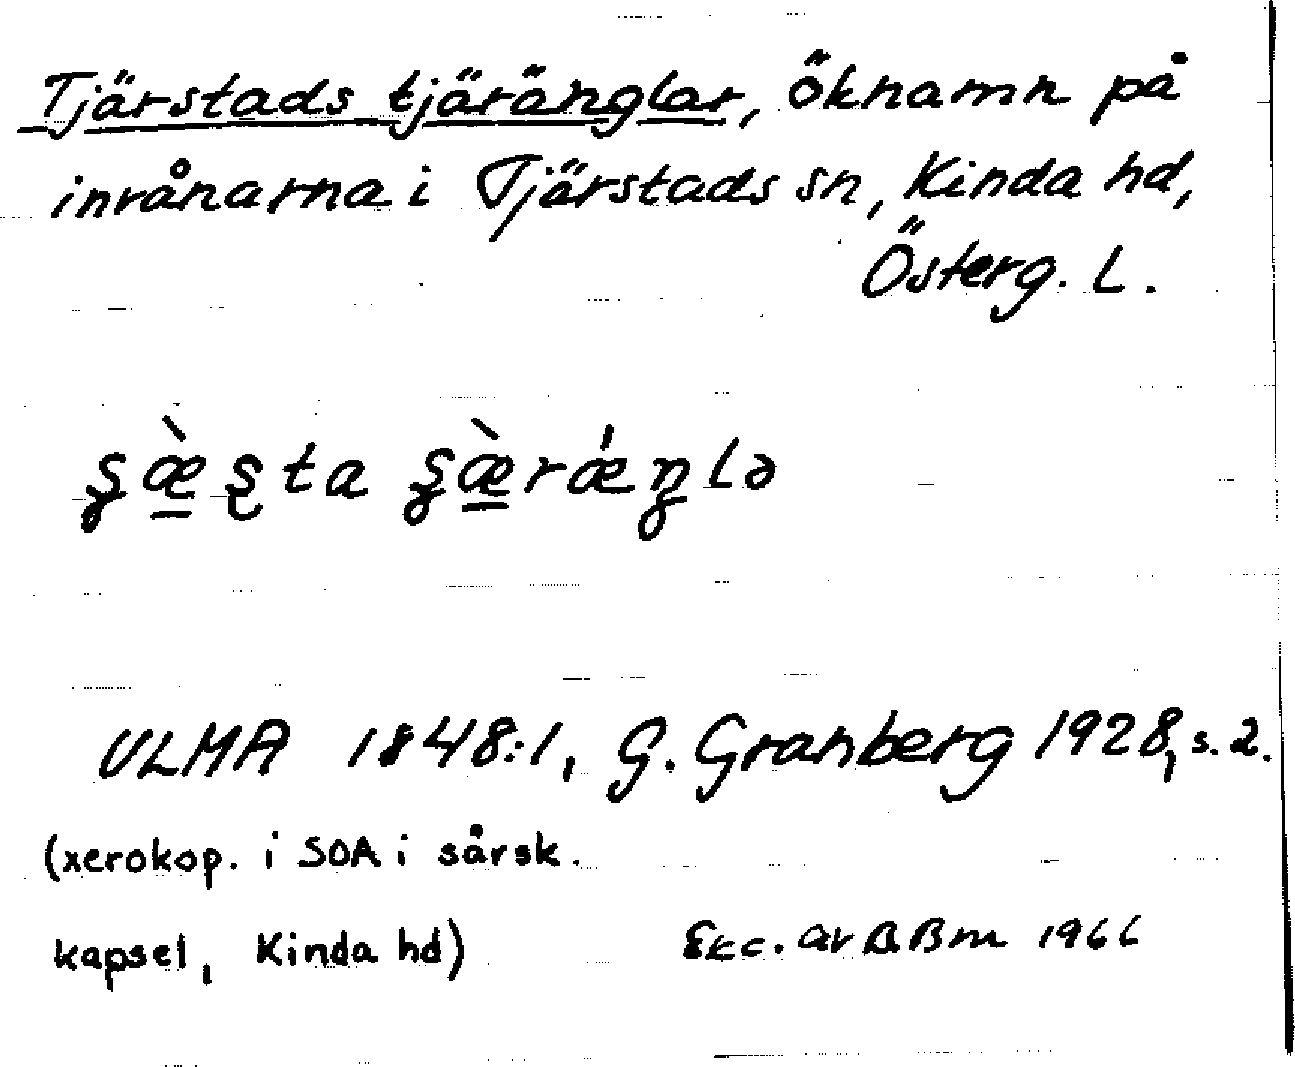 Tjärstads tjäränglar, öknamn på
invånarna i Tjärstads sn, Kinda hd,
Österg. L.
ʂæ̀ʂta ʂæ̀rǽŋlə
ULMA 1848:1, G. Granberg 1928, s. 2.
(xerokop. i SOA i särsk.
kapsel, Kinda hd)
Exc. av BBm 1966